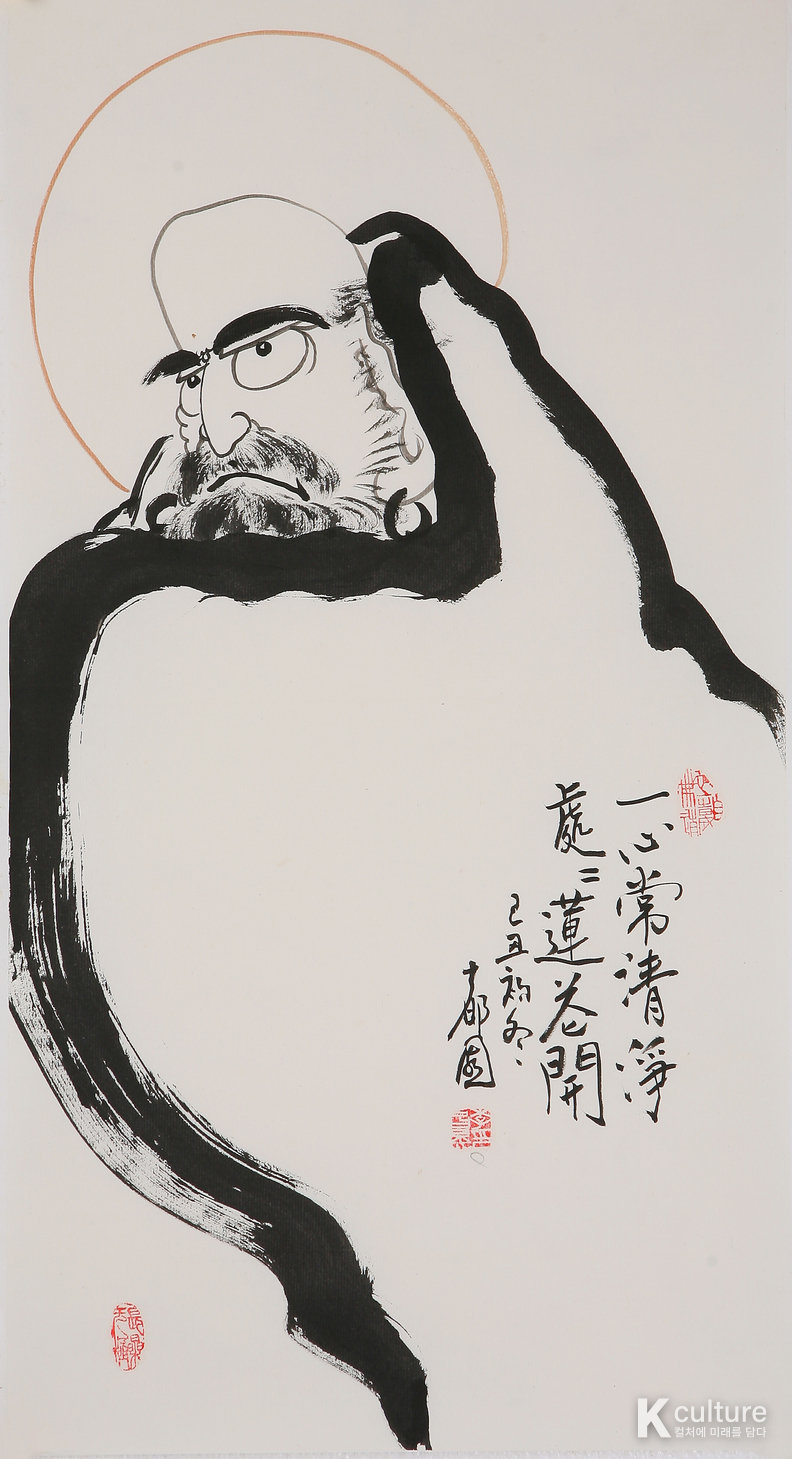 一心常清淨
處〻蓮花開
己丑初冬
K culture
컬처에 미래를 담다